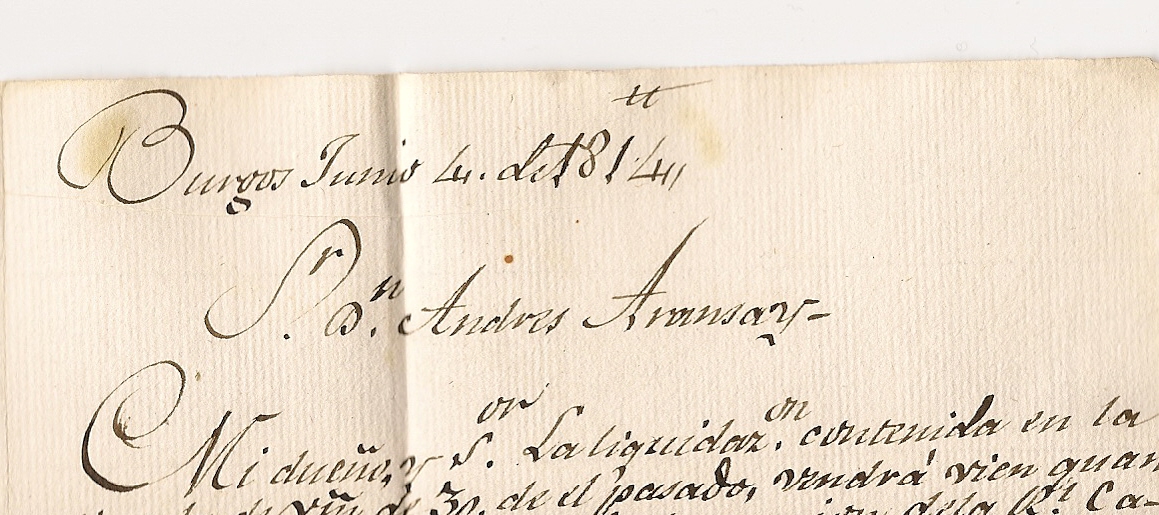 Burgos Junio 4. de 1814
S.r D.n Andres Aransay
Mi dueño, y S.or La liquidaz.on contenida en la
de 30. de el pasado, vendrá vien quan
dela R.l Ca-